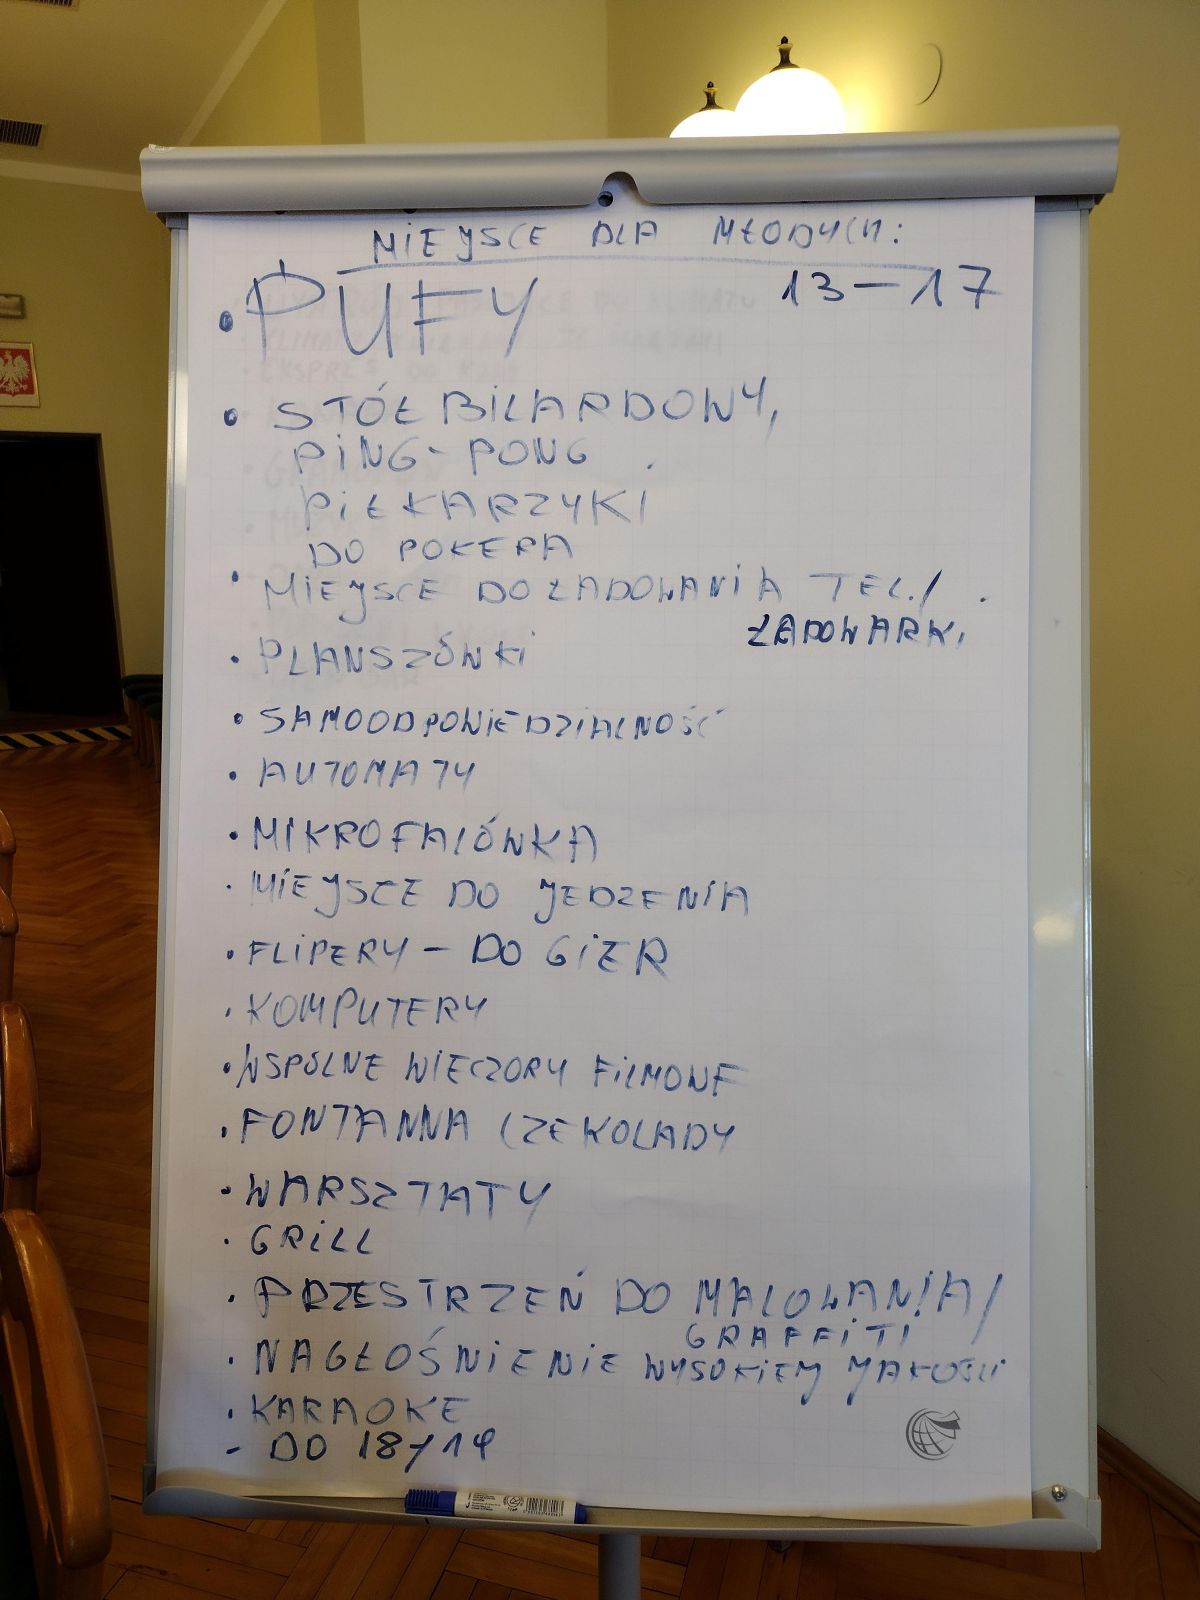 MIEJSCE DLA MŁODYCH:
13–17
• PUFY
• STÓŁ BILARDOWY,
PING-PONG
PIŁKARZYKI
DO POKERA
• MIEJSCE DO ŁADOWANIA TEL./
ŁADOWARKI
• PLANSZÓWKI
• SAMOODPOWIEDZIALNOŚĆ
• AUTOMATY
• MIKROFALÓWKA
• MIEJSCE DO JEDZENIA
• FLIPERY – DO GIER
• KOMPUTERY
• WSPÓLNE WIECZORY FILMOWE
• FONTANNA CZEKOLADY
• WARSZTATY
• GRILL
• PRZESTRZEŃ DO MALOWANIA/
GRAFFITI
• NAGŁOŚNIENIE WYSOKIEJ JAKOŚCI
• KARAOKE
- DO 18/19